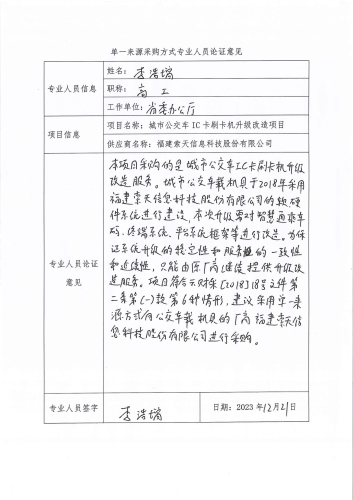 单一来源采购方式专业人员论证意见
专业人员信息
姓名：李浩端
职称：高工
工作单位：省委办公厅
项目信息
项目名称：城市公交车IC卡刷卡机升级改造项目
供应商名称：福建索天信息科技股份有限公司
专业人员论证意见
本项目采购的是城市公交车IC卡刷卡机升级
改造服务。城市公交车载机具于2018年采用
福建索天信息科技股份有限公司的软硬
件系统进行建设，本次升级需对智慧通乘车
码、终端系统、平台系统框架等进行改造。为保
证系统升级的稳定性和服务的一致性
和延续性，只能由原厂商继续提供升级改
造服务。项目符合云财采[2018]18号文件第
二条第(一)款第6种情形，建议采用单一来
源方式向公交车载机具的厂商福建索天信
息科技股份有限公司进行采购。
专业人员签字
李浩端
日期：2023年12月21日